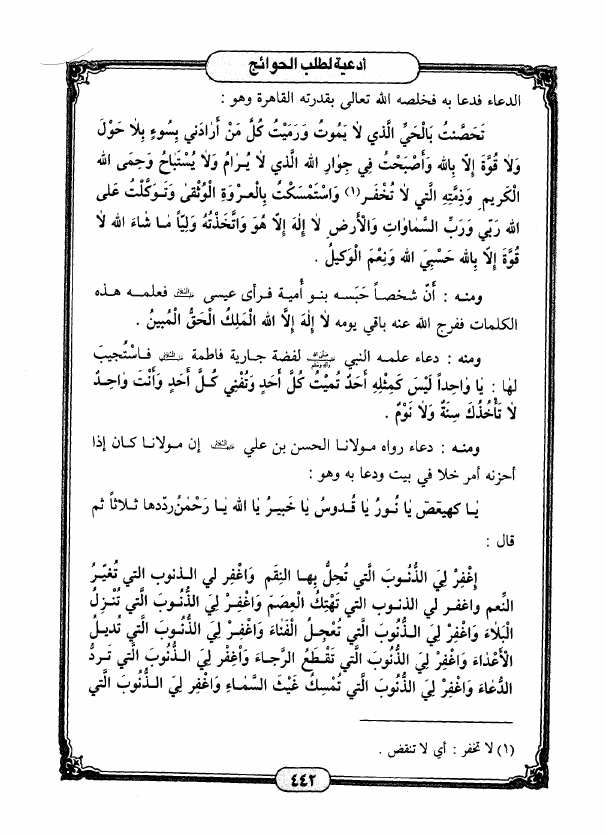 أدعية لطلب الحوائج
الدعاء فدعا به فخلصه الله تعالى بقدرته القاهرة وهو :
تَحَصَّنتُ بِالْحَيِّ الَّذي لاٰ يَمُوتُ وَرَمَيْتُ كُلَّ مَنْ أَرٰادَني بِسُوءٍ بِلاٰ حَوْلَ
وَلاٰ قُوَّةَ إِلاّ بِاللهِ وَأَصْبَحْتُ فِي جِوٰارِ اللهِ الَّذي لاٰ يُـرٰامُ وَلاٰ يُسْتَبٰاحُ وَحِمَى اللهِ
الْكَرِيمِ وَذِمَّتِهِ الَّتي لاٰ تُخْفَـر(١) وَاسْتَمْسَكْتُ بِالْعـروَةِ الْوُثْقىٰ وَتَـوَكَّلْتُ عَلَى
اللهِ رَبّي وَرَبِّ السَّمٰاوٰاتِ وَالْأَرضِ لاٰ إِلٰهَ إِلاّ هُوَ وَاتَّخَذْتُهُ وَلِيّاً مٰا شٰاءَ اللهُ لاٰ
قُوَّةَ إِلاّ بِاللهِ حَسْبِيَ اللهُ وَنِعْمَ الْوَكيلُ .
ومنه : أنّ شخصـاً حَبَسـه بنـو أُميـة فـرأى عيسى عليه السلام فعلمـه هـذه
الكلمات ففرج الله عنه باقي يومه لاٰ إِلٰهَ إِلَّا اللهُ الْمَلِكُ الْحَقُّ الْمُبينُ .
ومنه : دعاء علمـه النبي صلى الله عليه وآله وسلم لفضة جارية فاطمة عليها السلام فـاسْتُجيبَ
لهٰا : يٰا وٰاحِداً لَيْسَ كَمِثْلِهِ أَحَدٌ تُميْتُ كُلَّ أَحَدٍ وَتُفْنِي كُـلَّ أَحَدٍ وَأَنْتَ وٰاحِـدٌ
لاٰ تَأْخُذُكَ سِنَةٌ وَلاٰ نَوْمٌ .
ومنـه : دعاء رواه مـولانـا الحسن بن علي عليه السلام إن مولانا كـان إذا
أحزنه أمر خلا في بيت ودعا به وهو :
يٰـا كهيعص يٰا نُـورُ يٰا قُـدوسُ يٰا خَبيـرُ يٰا اللهُ يٰـا رَحْمٰنُ ردّدها ثـلاثـاً ثم
قال :
إِغْفِرْ لِيَ الذُّنُـوبَ الَّتي تُحِلُّ بِهـا النِقَمِ وَاغْفِر لي الـذنوب التي تُغيِّـرُ
النِّعم واغفـر لي الذنوب التي تَهْتِكُ الْعِصَمَ وَاغْفِـرْ لِيَ الذُّنُـوبَ الَّتي تُنْـزِلُ
الْبَلٰاءَ وَاغْفِرْ لِيَ الـذُّنُوبَ الَّتي تُعْجِـلُ الْفَنٰاءَ وَاغْفِـرْ لِيَ الذُّنُـوبَ الَّتي تُديـلُ
الْأَعْدٰاءَ وَاغْفِرْ لِيَ الذُّنُوبَ الَّتي تَقْطَـعُ الرَّجٰـاءَ وَاغْفِرْ لِيَ الـذُّنُوبَ الَّتي تَـردُّ
الدُّعٰاءَ وَاغْفِرْ لِيَ الذُّنُوبَ الَّتي تُمْسِكُ غَيْثَ السَّمٰاءِ وَاغْفِر لِيَ الـذُّنُوبَ الَّتي
(١) لا تخفر : أي لا تنقض .
٤٤٢